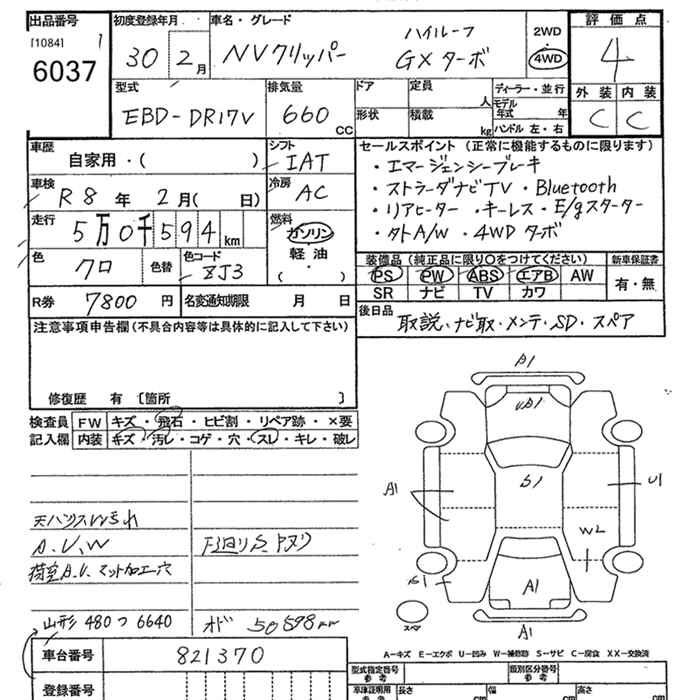 出品番号 初度登録年月 車名・グレード 評価点
[1084] 6037 30 2月 NVクリッパー ハイルーフ GXターボ 2WD 4WD 4
型式 排気量 ドア 定員 人 ディーラー・並行 外装 内装
EBD-DR17V 660 CC 形状 積載 kg モデル年式 年 ハンドル 左・右 C C
車歴 自家用・( ) シフト IAT セールスポイント(正常に機能するものに限ります)
・エマージェンシーブレーキ
車検 R8年 2月( 日) 冷房 AC
・ストラーダナビTV・Bluetooth
走行 5万0千594km 燃料 ガソリン・軽油・( )
・リアヒーター ・キーレス・E/gスターター
・タトA/W ・4WDターボ
色 クロ 色替 色コード ZJ3
装備品(純正品に限り○をつけてください) 新車保証書
PS PW ABS エアB AW 有・無
SR ナビ TV カワ
R券 7800円 名変通知期限 月 日
後日品 取説・ナビ取・メンテ・SD・スペア
注意事項申告欄(不具合内容等は具体的に記入して下さい)
修復歴 有 [箇所 ]
検査員記入欄 FW キズ・飛石・ヒビ割・リペア跡・×要
内装 キズ・汚レ・コゲ・穴・スレ・キレ・破レ
A1
A1
A1
U1
W2
A1
A1
スペア
A.U.W
荷室A.U.マット加工穴
山形 480つ6640 オド 50598km
A−キズ E−エクボ U−凹み W−補修跡 S−サビ C−腐食 XX−交換済
車台番号 821370
型式指定番号 参考 類別区分番号 参考
登録番号
車庫証明用 参考 長さ cm 幅 cm 高さ cm